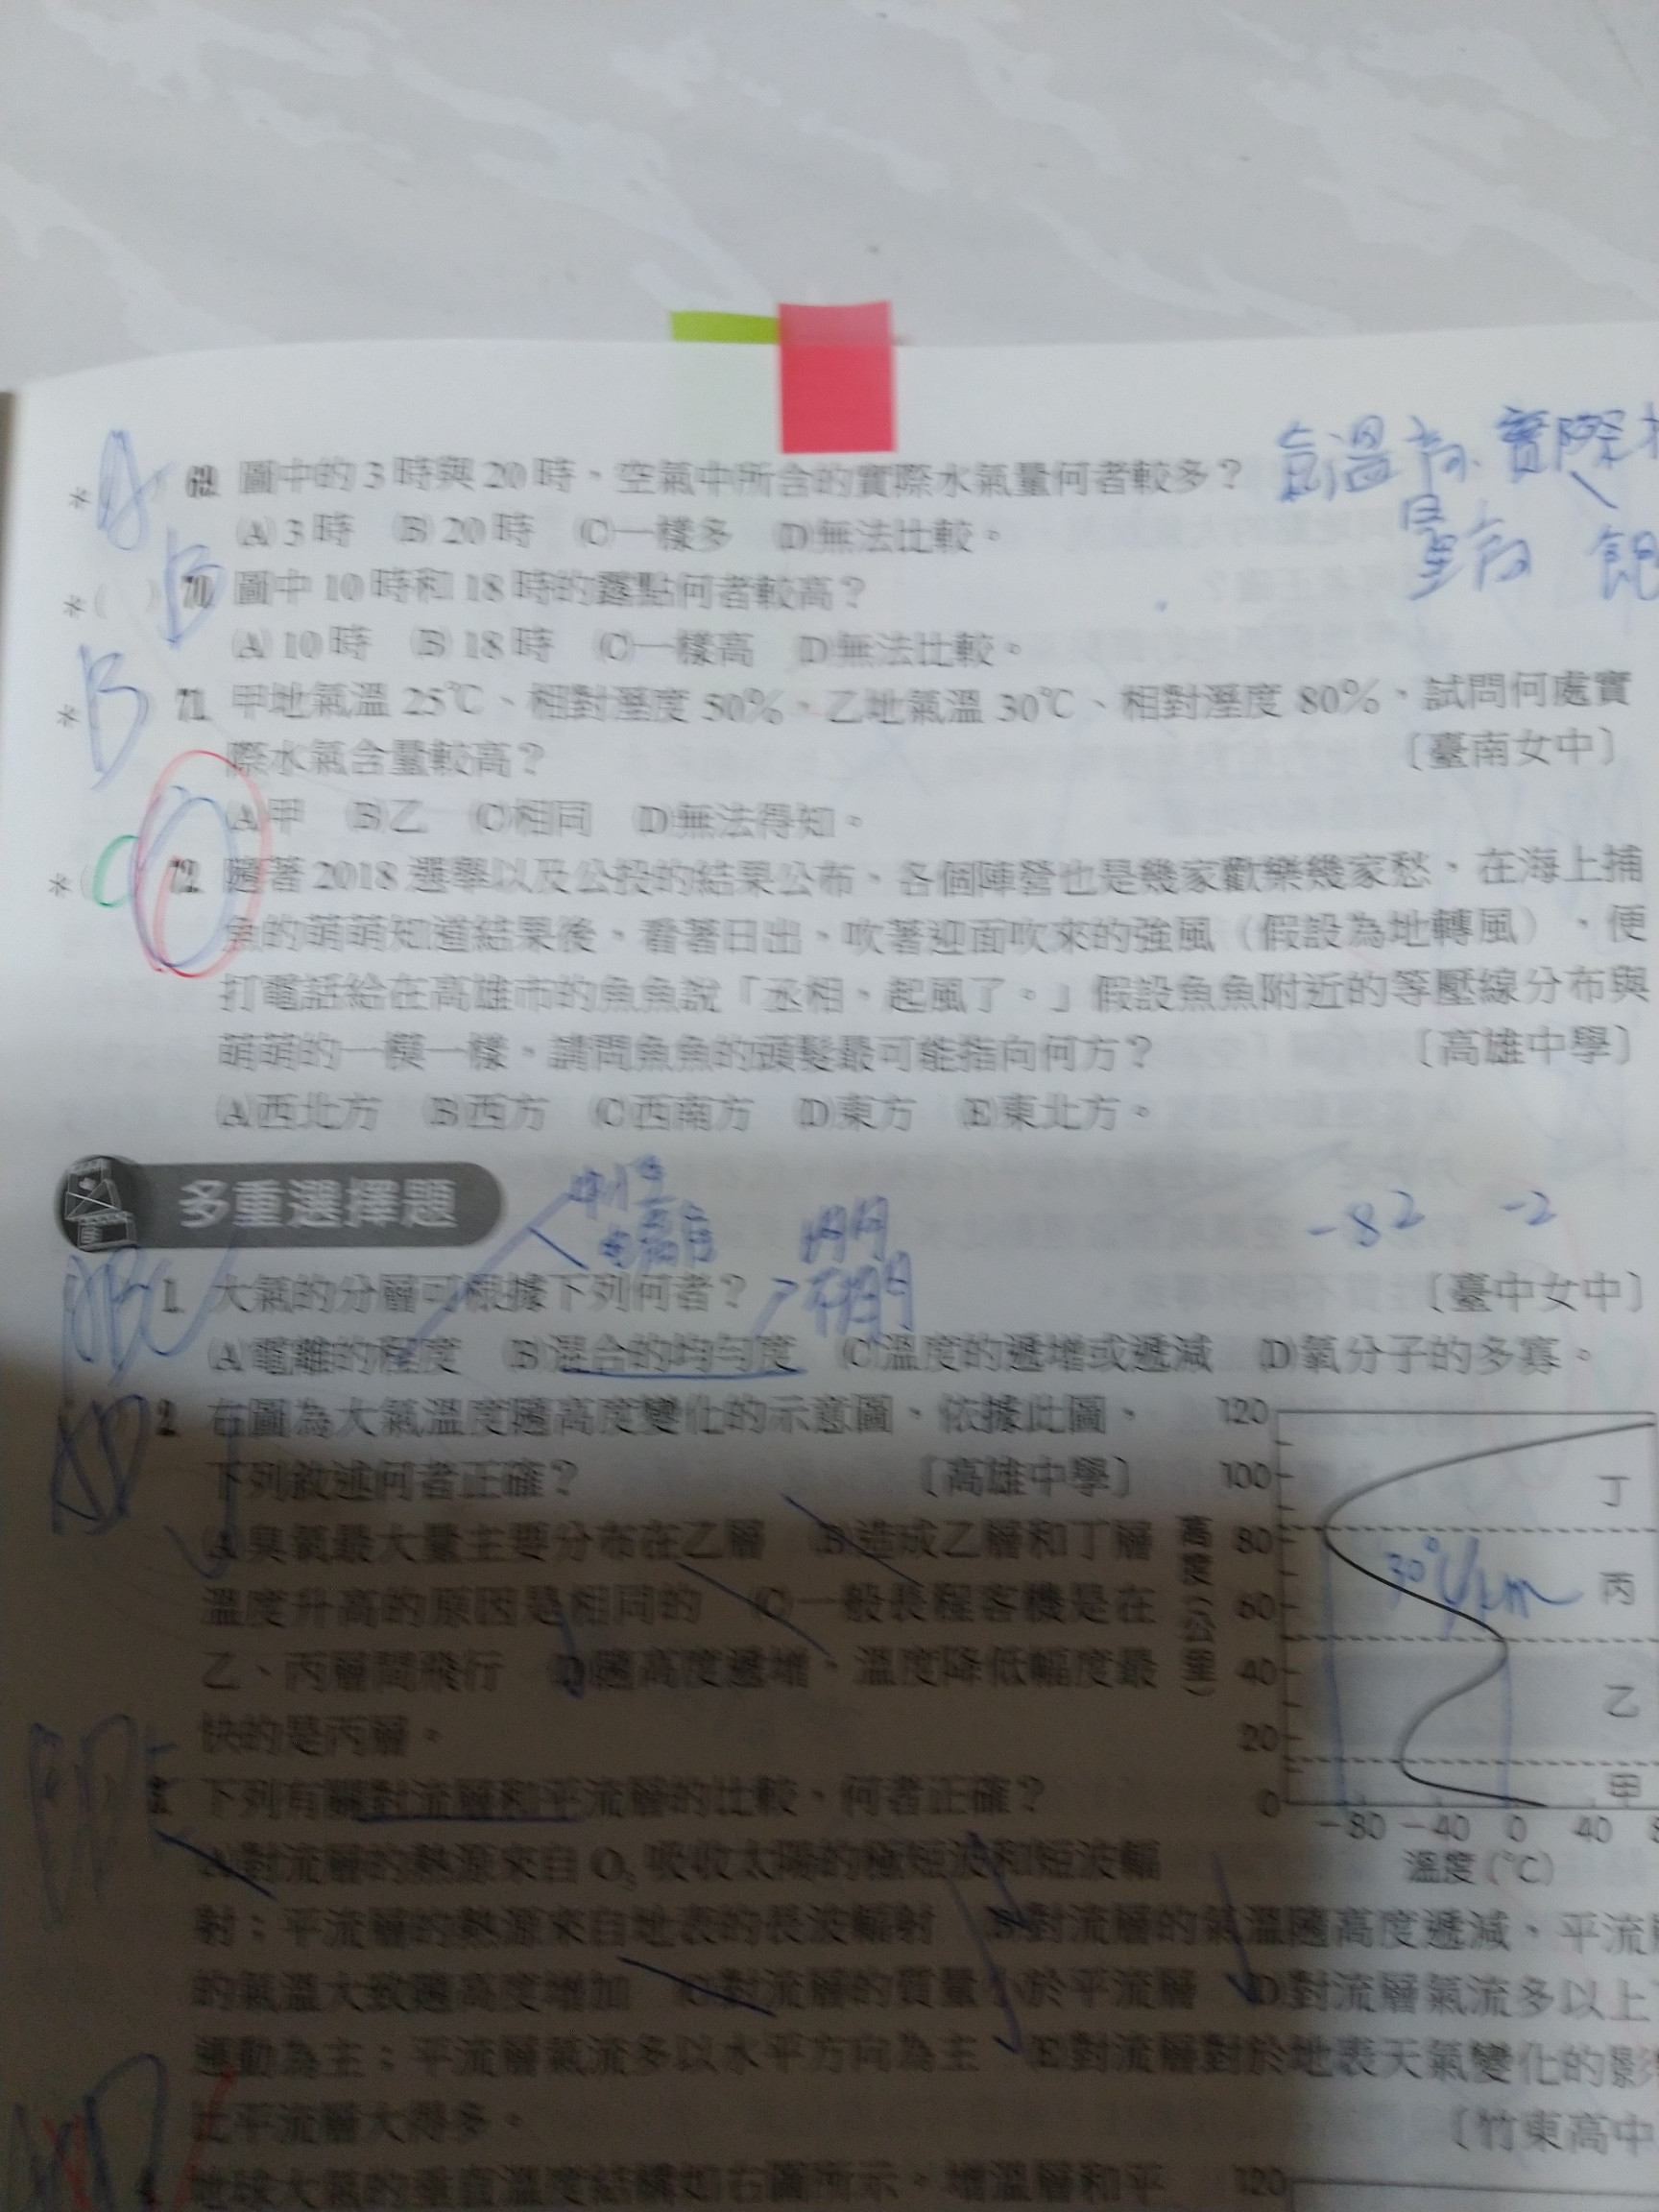 氣溫高 實際
量高
A
*69. 圖中的 3 時與 20 時，空氣中所含的實際水氣量何者較多？
(A) 3 時 (B) 20 時 (C)一樣多 (D)無法比較。
B
*( )70. 圖中 10 時和 18 時的露點何者較高？
(A) 10 時 (B) 18 時 (C)一樣高 (D)無法比較。
B
*71. 甲地氣溫 25℃、相對溼度 50%，乙地氣溫 30℃、相對溼度 80%，試問何處實
際水氣含量較高？〔臺南女中〕
(A)甲 (B)乙 (C)相同 (D)無法得知。
*( 72. 隨著 2018 選舉以及公投的結果公布，各個陣營也是幾家歡樂幾家愁，在海上捕
魚的萌萌知道結果後，看著日出，吹著迎面吹來的強風（假設為地轉風），便
打電話給在高雄市的魚魚說「丞相，起風了。」假設魚魚附近的等壓線分布與
萌萌的一模一樣，請問魚魚的頭髮最可能指向何方？〔高雄中學〕
(A)西北方 (B)西方 (C)西南方 (D)東方 (E)東北方。
多重選擇題
中性
電離
-82 -2
ABC
1. 大氣的分層可根據下列何者？〔臺中女中〕
(A)電離的程度 (B)混合的均勻度 (C)溫度的遞增或遞減 (D)氧分子的多寡。
AD
2. 右圖為大氣溫度隨高度變化的示意圖，依據此圖，
下列敘述何者正確？〔高雄中學〕
(A)臭氧最大量主要分布在乙層 (B)造成乙層和丁層
溫度升高的原因是相同的 (C)一般長程客機是在
乙、丙層間飛行 (D)隨高度遞增，溫度降低幅度最
快的是丙層。
120
100
80
60
40
20
0
高度（公里）
丁
丙
乙
甲
-80 -40 0 40
溫度(℃)
BDE
3. 下列有關對流層和平流層的比較，何者正確？
(A)對流層的熱源來自 O₃ 吸收太陽的極短波和短波輻
射；平流層的熱源來自地表的長波輻射 (B)對流層的氣溫隨高度遞減，平流
的氣溫大致隨高度增加 (C)對流層的質量小於平流層 (D)對流層氣流多以上
運動為主；平流層氣流多以水平方向為主 (E)對流層對於地表天氣變化的影
比平流層大得多。〔竹東高中
4. 地球大氣的垂直溫度結構如右圖所示。增溫層和平
120